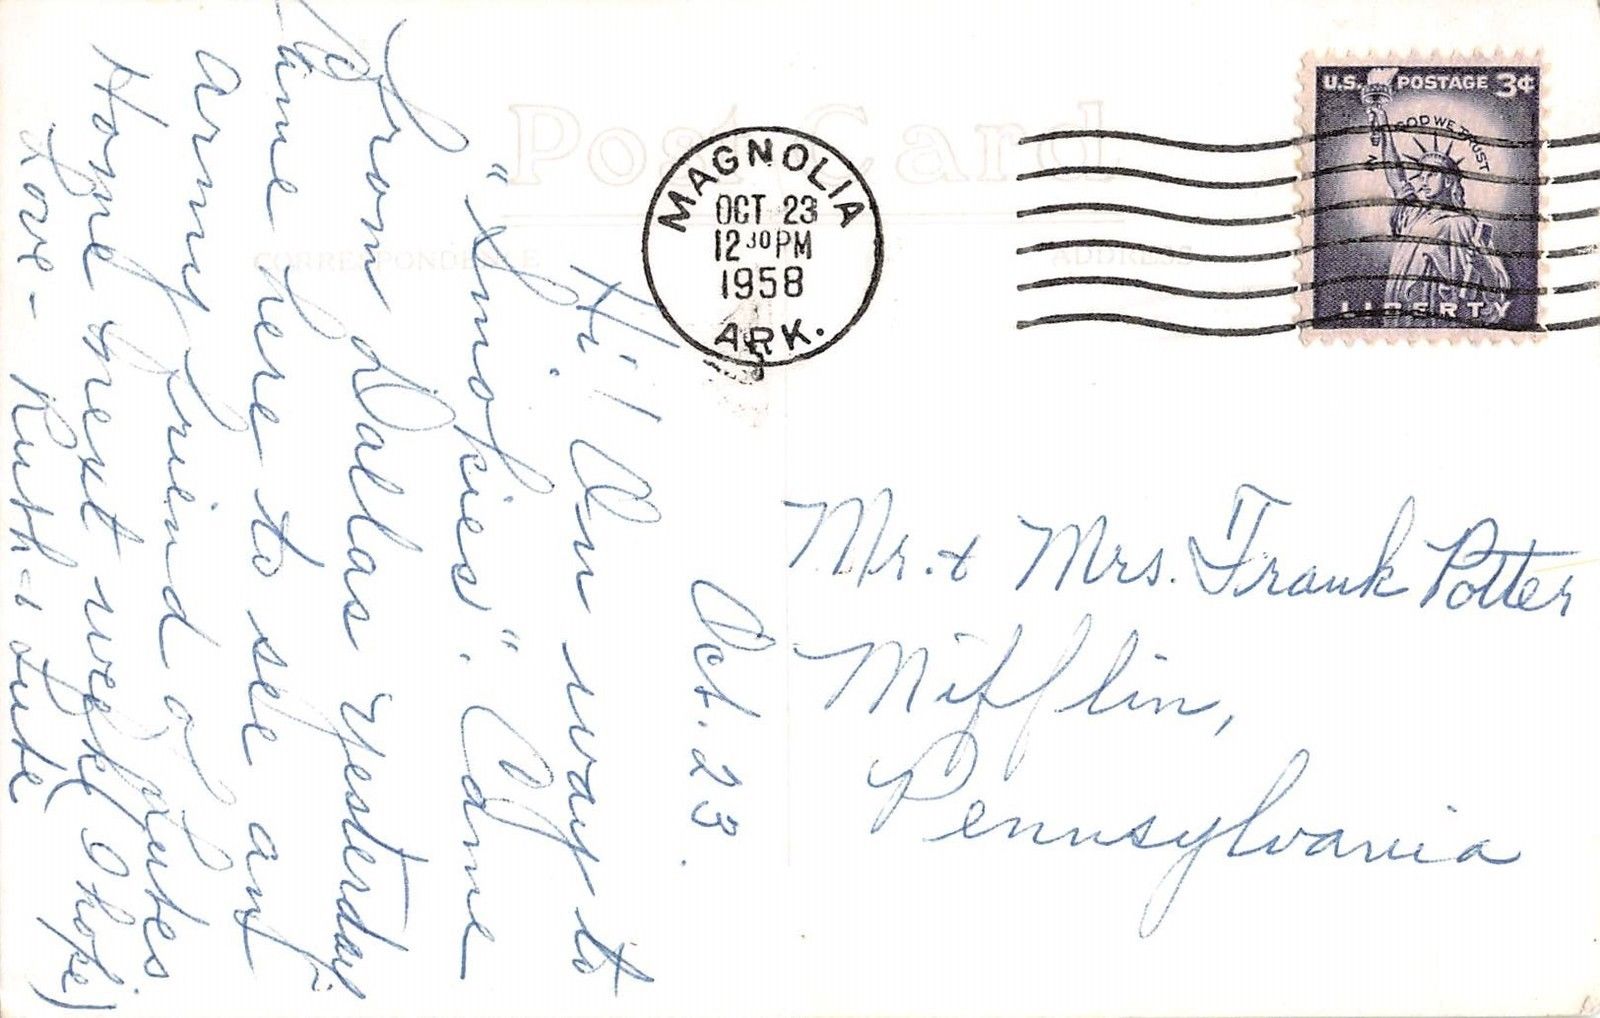 Post Card
CORRESPONDENCE
ADDRESS
MAGNOLIA
OCT 23
12 30 PM
1958
ARK.
U.S. POSTAGE 3¢
IN GOD WE TRUST
LIBERTY
Oct. 23.
Hi! On way to
"Smokies". Came
from Dallas yesterday.
Came here to see an
army friend of Lutes
Home next week (I hope)
Love - Ruth & Lute
Mr. & Mrs. Frank Potter
Mifflin,
Pennsylvania